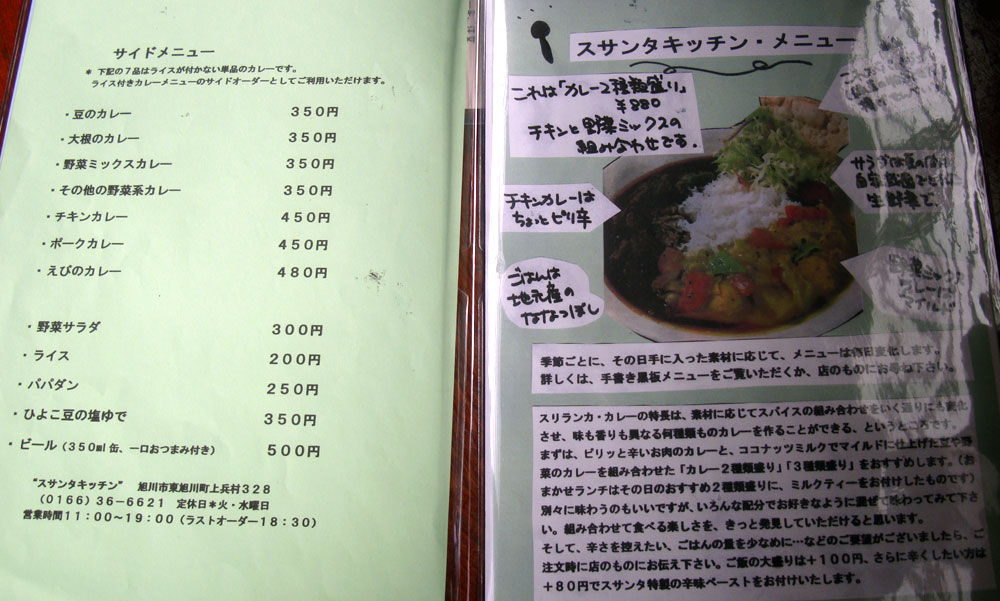 サイドメニュー
＊ 下記の７品はライスが付かない単品のカレーです。
ライス付きカレーメニューのサイドオーダーとしてご利用いただけます。
・豆のカレー ３５０円
・大根のカレー ３５０円
・野菜ミックスカレー ３５０円
・その他の野菜系カレー ３５０円
・チキンカレー ４５０円
・ポークカレー ４５０円
・えびのカレー ４８０円
・野菜サラダ ３００円
・ライス ２００円
・パパダン ２５０円
・ひよこ豆の塩ゆで ３５０円
・ビール（３５０ml 缶、一口おつまみ付き） ５００円
“スサンタキッチン” 旭川市東旭川町上兵村３２８
（０１６６）３６－６６２１ 定休日＊火・水曜日
営業時間１１：００～１９：００（ラストオーダー１８：３０）
スサンタキッチン・メニュー
これは「カレー２種類盛り」
￥８８０
チキンと野菜ミックスの
組み合わせです。
チキンカレーは
ちょっとピリ辛
ごはんは
地元産の
ななつぼし
自家農園でとれた
生野菜で、
野菜ミックス
カレーは
マイルド
季節ごとに、その日手に入った素材に応じて、メニューは毎日変化します。
詳しくは、手書き黒板メニューをご覧いただくか、店のものにお尋ね下さい。
スリランカ・カレーの特長は、素材に応じてスパイスの組み合わせをいく通りにも変化
させ、味も香りも異なる何種類ものカレーを作ることができる、というところです。
まずは、ピリッと辛いお肉のカレーと、ココナッツミルクでマイルドに仕上げた豆や野
菜のカレーを組み合わせた「カレー２種類盛り」「３種類盛り」をおすすめします。（お
まかせランチはその日のおすすめ２種類盛りに、ミルクティーをお付けしたものです）
別々に味わうのもいいですが、いろんな配分でお好きなように混ぜて味わってみて下さ
い。組み合わせて食べる楽しさを、きっと発見していただけると思います。
そして、辛さを控えたい、ごはんの量を少なめに…などのご要望がございましたら、ご
注文時に店のものにお伝え下さい。ご飯の大盛りは＋１００円、さらに辛くしたい方は
＋８０円でスサンタ特製の辛味ペーストをお付けいたします。